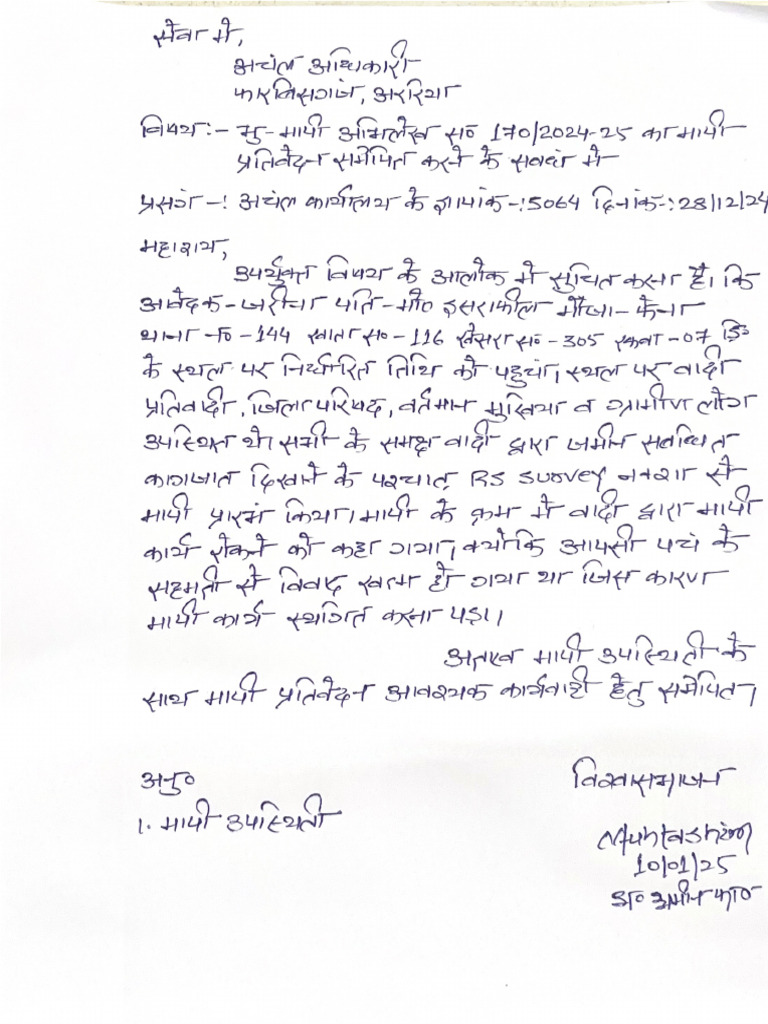 सेवा में,
अचंल अधिकारी
फारबिसगंज, अररिया
विषय:- भु-मापी अभिलेख स० 170/2024-25 का मापी
प्रतिवेदन समेपित करने के सबंध में
प्रसगं-: अचंल कार्यालय के ज्ञापांक-:5064 दिनांक-:28/12/24
महाशय,
उपर्युक्त विषय के आलोक में सुचित करना है। कि
आवेदक-जरीना पति-मो० इसराफील मौजा-
थाना न०-144 खाता स०-116 खेसरा स०-305 रकवा-07 डि०
के स्थल पर निर्धारित तिथि को पहुचां, स्थल पर वादी
प्रतिवादी, जिला परिषद, वर्तमान मुखिया व ग्रामीण लोग
उपस्थित थे। सभी के समक्ष वादी द्वारा जमीन सबंधित
कागजात दिखाने के पश्चात् RS SURVEY नक्शा से
मापी प्रारभं किया। मापी के क्रम में वादी द्वारा मापी
कार्य रोकने को कहा गया, क्योंकि आपसी पचं के
सहमती से विवाद खत्म हो गया था जिस कारण
मापी कार्य स्थगित करना पड़ा।
अतएव मापी उपस्थिती के
साथ मापी प्रतिवेदन आवश्यक कार्यवाही हेतु समेपित।
अनु०
विश्वासभाजन
1. मापी उपस्थिती
10/01/25